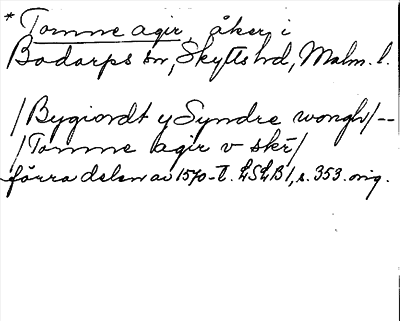 * Tomme agir, åker i
Bodarps sn, Skytts hd, Malm. l.
/Bygiordt y Syndre wongh/--
/Tomme agir v skē/
förra delen av 1570-t. LSLB1, s. 353. orig.